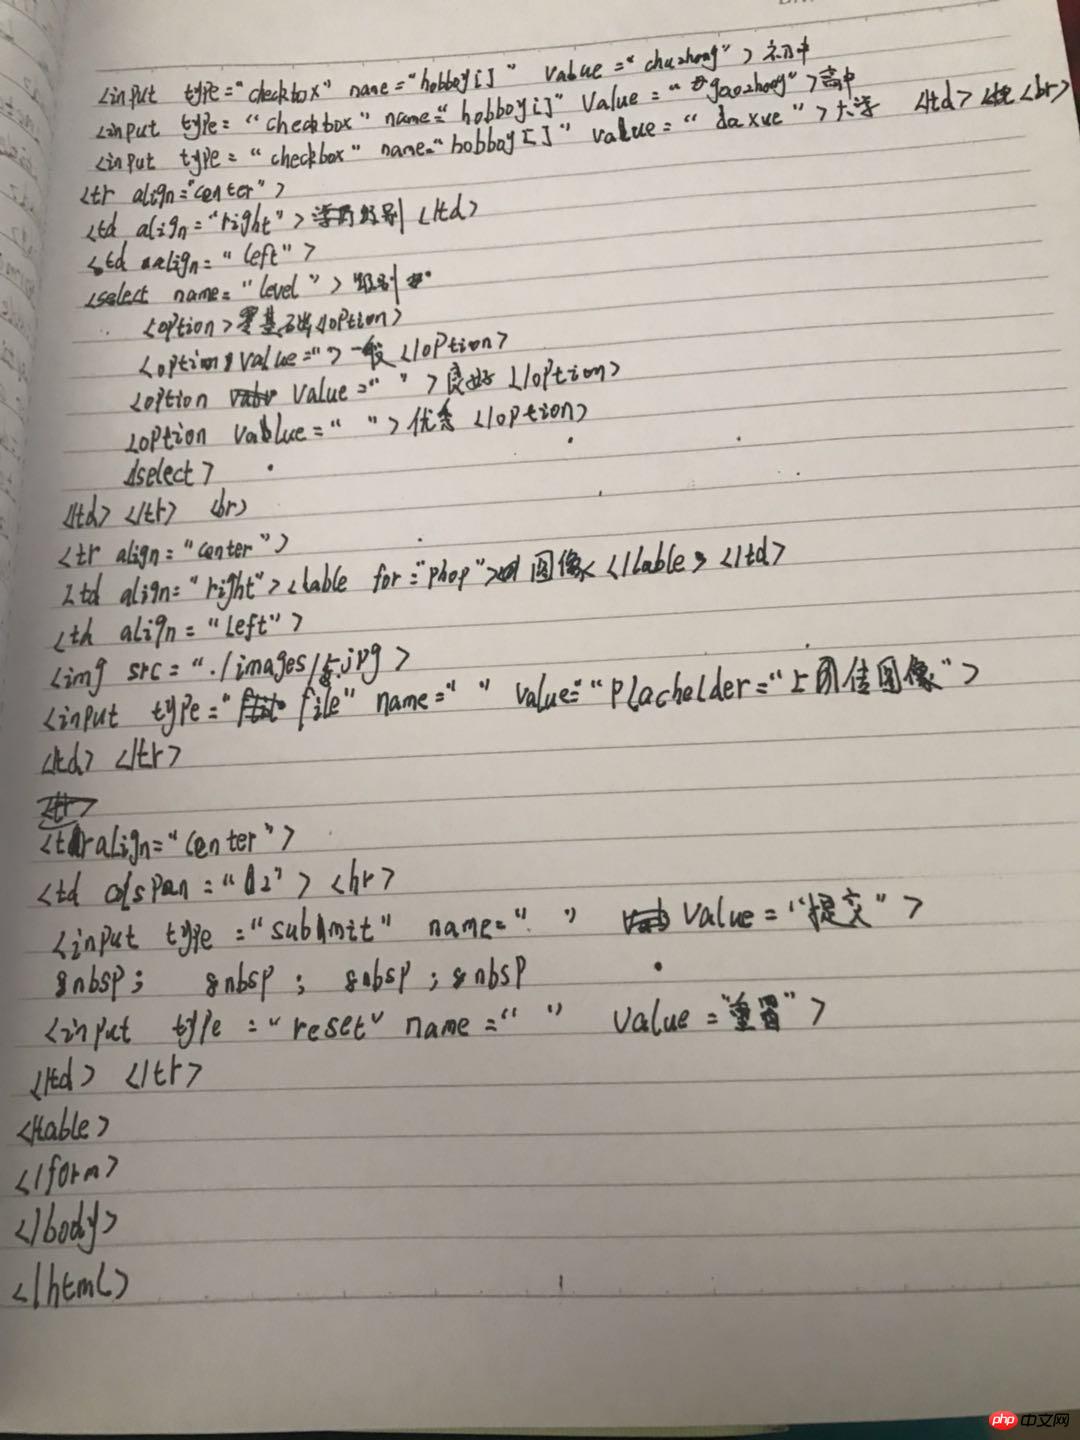 <input type="checkbox" name="hobboy[]" value="chuzhong">初中
<input type="checkbox" name="hobboy[]" value="gaozhong">高中
<input type="checkbox" name="hobboy[]" value="daxue">大学 </td> 
<tr align="center">
<td align="right">学历级别</td>
<td align="left">
<select name="level">级别
<option>零基础</option>
<option value="">一般</option>
<option value=" ">良好</option>
<option vablue=" ">优秀</option>
</select>
</td> </tr> 
<tr align="center">
<td align="right"><lable for="phop">图像<</lable></td>
<th align="left">
<img src="./images/5.jpg>
<input type="file" name=" " value="plachelder="上团传图像">
</td> </tr>
<tr align="center">
<td colspan="2"> <hr>
<input type="submit" name=" " value="提交">
&nbsp; &nbsp; &nbsp; &nbsp
<input type="reset" name=" " value="重置">
</td> </tr>
</table>
</form>
</body>
</html>
php 中文网